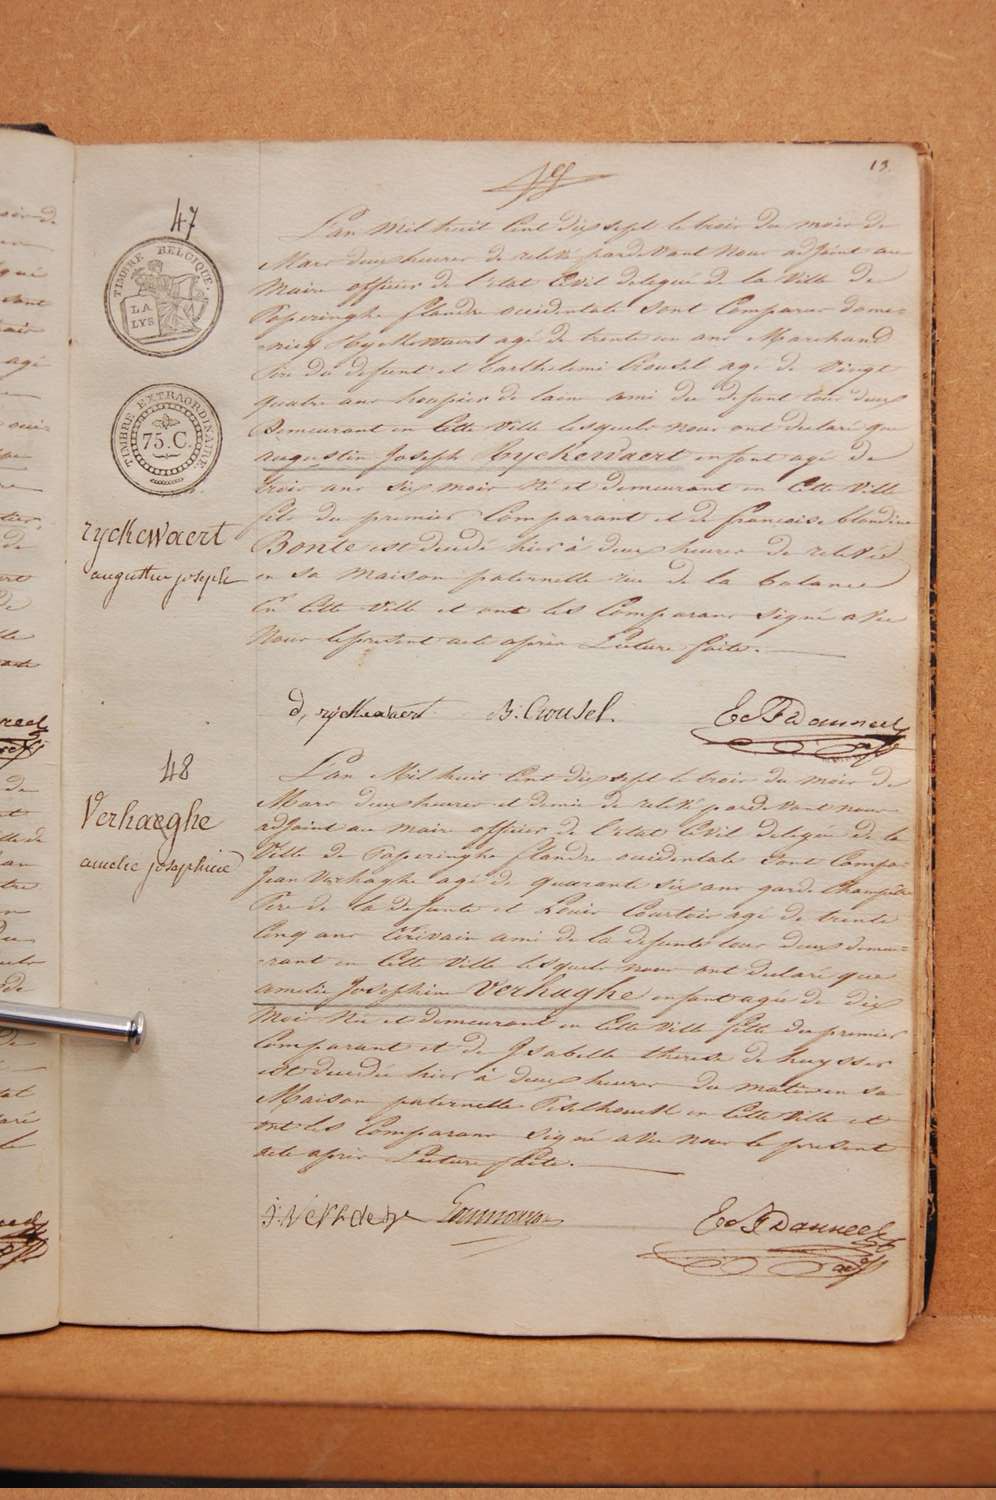 13.
47
TIMBRE BELGIQUE.
LA
LYS
TIMBRE EXTRAORDINAIRE
75.C.
ryckewaert
augustin joseph
L'an Mil huit Cent dix sept le trois du mois de
Mars deux heures de relevé pardevant Nous adjoint au
Maire officier de l'etat Civil delegué de la Ville de
Poperinghe flandre occidentale sont Comparus dome-
-nicq Ryckewaert agé de trente un ans Marchand
Pere du defunt et Barthelemi Crousel age de Vingt
quatre ans houpier de laine ami du defunt tous deux
Demeurant en Cette Ville lesquels nous ont declaré que
augustin Joseph Ryckewaert enfant agé de
trois ans six mois Né et demeurant en Cette Ville
fils du premier Comparant et de françoise blondine
Bonte est decedé hier à deux heures de relevée
en sa Maison paternelle rue de la balance
En Cette Ville et ont les Comparans signé avec
Nous le present acte après Lecture faite.
d, ryckewaert B. Crousel. E de F Dauneel
48
Verhaeghe
amelie josephine
L'an Mil huit Cent dix sept le trois du mois de
Mars deux heures et demie de relevé pardevant nous
adjoint au maire officier de l'etat Civil delegué de la
Ville de Poperinghe flandre occidentale sont Compa-
Jean Verhaghe agé de quarante six ans garde Champêtre
Pere de la defunte et Louis Courtois agé de trente
Cinq ans Ecrivain ami de la defunte tous deux demeu-
-rant en Cette Ville lesquels nous ont declaré que
amelie Josephine Verhaghe enfant agée de dix
Mois Né et demeurant en Cette Ville fille du premier
Comparant et de Isabelle therese de huysser
est decedée hier à deux heures du matin en sa
Maison paternelle en Cette Ville et
ont les Comparans signé avec Nous le present
acte après Lecture faite.
E de F Dauneel